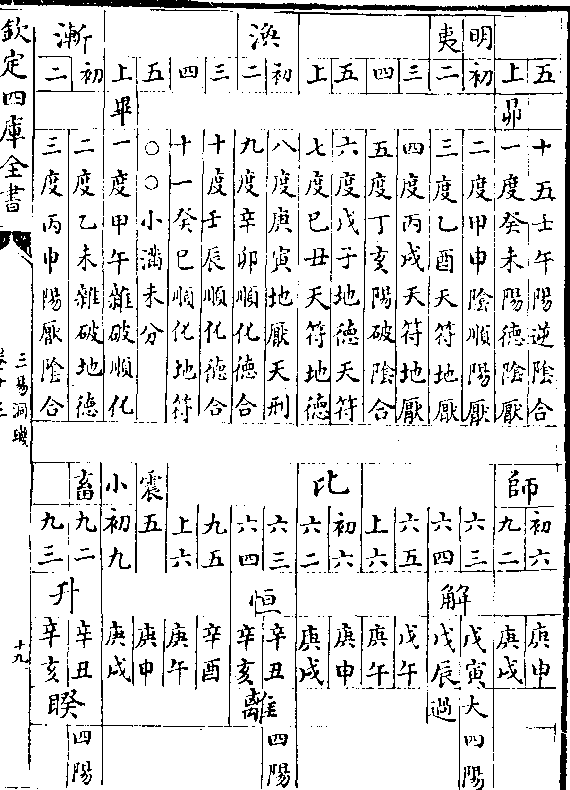 明夷 渙 漸
五 上 初 二 三 四 五 上 初 二 三 四 五 上 初 二
昴 畢
十五壬午陽逆陰合
一度癸未陽德陰厭
二度甲申陰順陽厭
三度乙酉天符地厭
四度丙戌天符地厭
五度丁亥陽破陰合
六度戊子地德天符
七度巳丑天符地德
八度庚寅地厭天刑
九度辛卯順化德合
十度壬辰順化德合
十一癸巳順化地符
○○小滿未分
一度甲午雜破順化
二度乙未雜破地德
三度丙申陽厭陰合
師 比 震 小畜
初六 九二 六三 六四 六五 上六 初六 六二 六三 六四 九五 上六 五 初九 九二 九三
解 恒 升
庚申 庚戌 戊寅 戊辰 戊午 庚午 庚申 庚戌 辛丑 辛亥 辛酉 庚午 庚申 庚戌 辛丑 辛亥
大過 離 睽
四陽 四陽 四陽
欽定四庫全書
三易洞璣
卷十三
十九